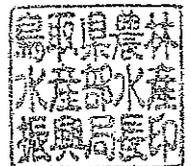 鳥取県農林
水産部水産
振興局長印